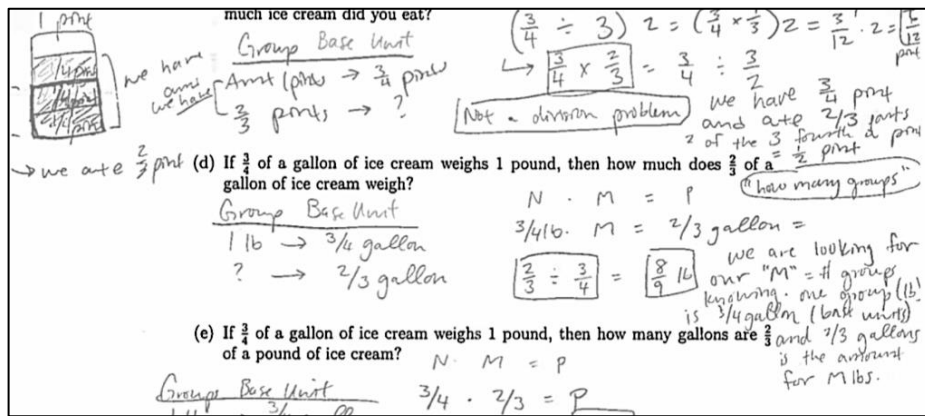 1 pint
much ice cream did you eat?
Group Base Unit
Amt (pints → 3/4 pints
2/3 points → ?
we have
we have
1/4 pint
(3/4 ÷ 3) 2 = (3/4 × 1/3) 2 = 3/12 · 2 =
pint
↳ 3/4 × 2/3 = 3/4 ÷ 3/2
Not a division problem
we have 3/4 pint
and ate 2/3 parts
2 of the 3 fourth a pint
= 1/2 pint
→ we ate pint
(d) If 3/4 of a gallon of ice cream weighs 1 pound, then how much does 2/3 of a
gallon of ice cream weigh?
"how many groups"
Group Base Unit
1 lb → 3/4 gallon
? → 2/3 gallon
N · M = P
3/4 lb. M = 2/3 gallon =
2/3 ÷ 3/4 = 8/9 lb
we are looking for
our "M" = # groups
knowing. one group (lb)
is 3/4 gallon (base units)
and 2/3 gallons
is the amount
for M lbs.
(e) If 3/4 of a gallon of ice cream weighs 1 pound, then how many gallons are 2/3
of a pound of ice cream?
N. M = P
3/4 · 2/3 = P
Groups Base Unit